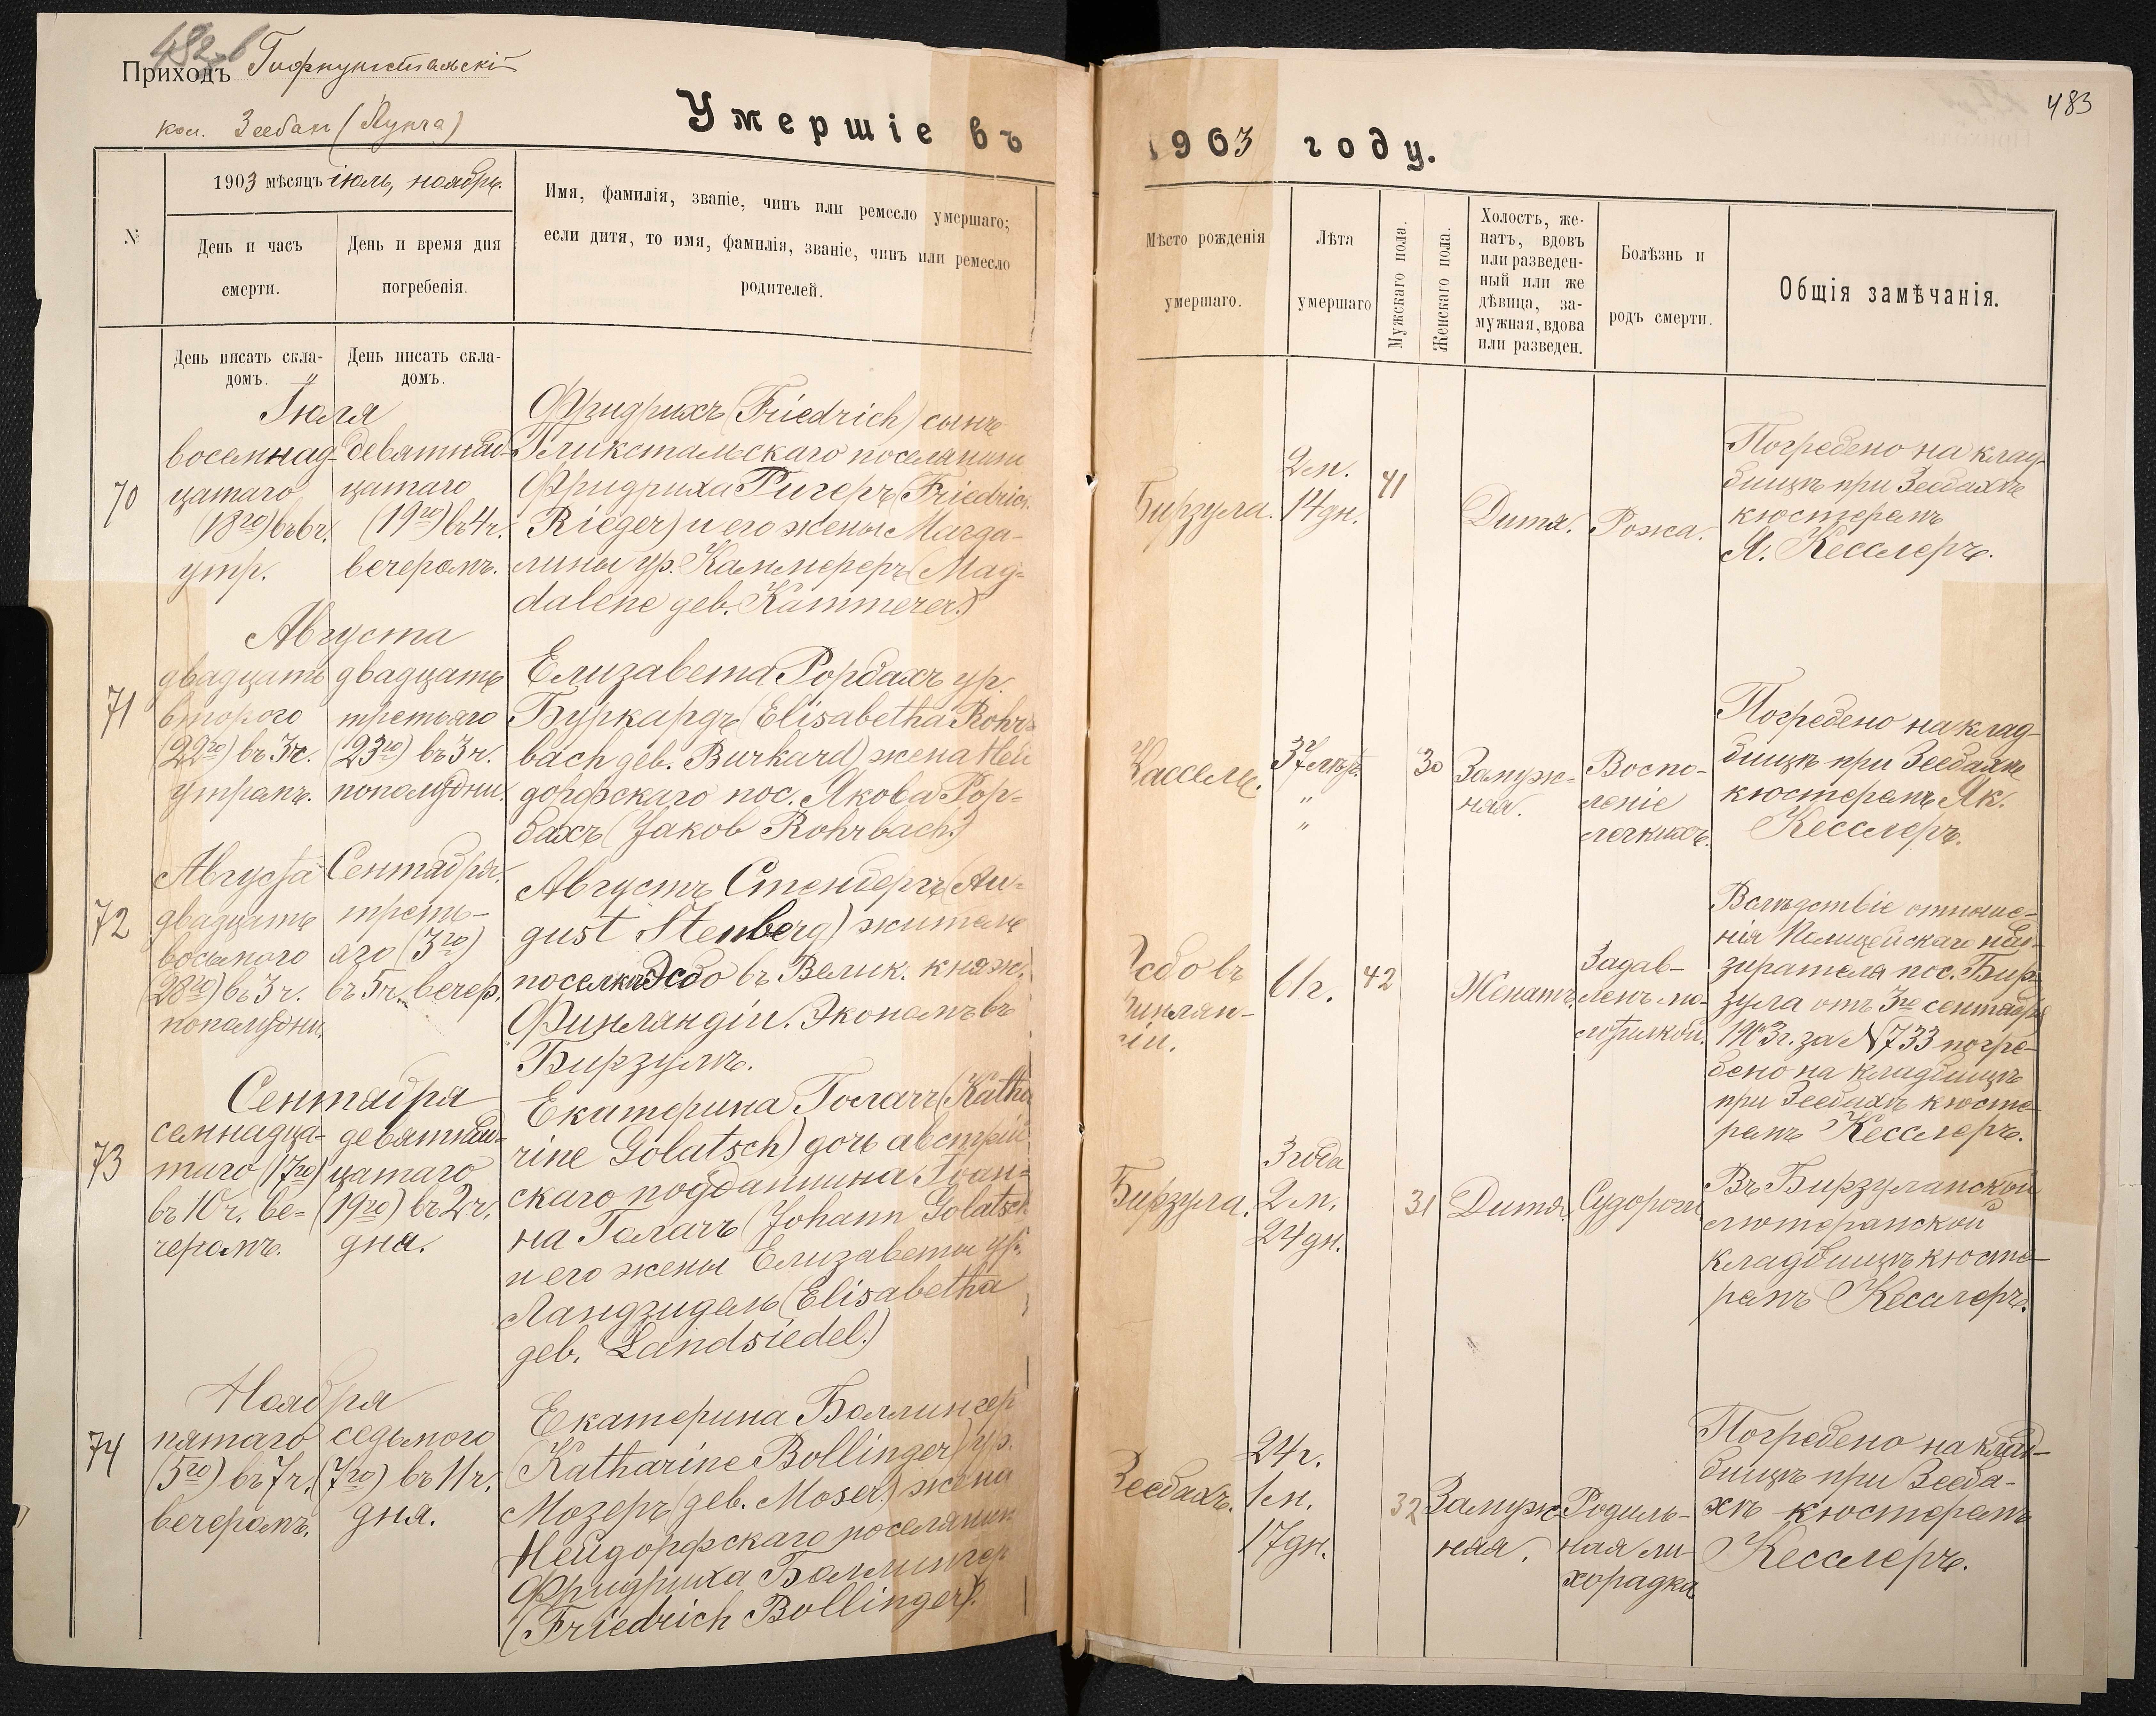 482 об
Приходъ Гофнунгстальскій
483
кол. Зеебах (Лунга)
Умершіе въ 1903 году.
№
1903 мѣсяцъ іюль, ноябрь.
День и часъ смерти.
День и время дня погребенія.
Имя, фамилія, званіе, чинъ или ремесло умершаго;
если дитя, то имя, фамилія, званіе, чинъ или ремесло
родителей.
Мѣсто рожденія
умершаго.
Лѣта
умершаго
Мужскаго пола.
Женскаго пола.
Холостъ, же-
натъ, вдовъ
или разведен-
ный или же
дѣвица, за-
мужная, вдова
или разведен.
Болѣзнь и
родъ смерти.
Общія замѣчанія.
День писать скла-
домъ.
День писать скла-
домъ.
70
Іюля
восемнад-
цатаго
(18го) въ 6 ч.
утр.
девятнад-
цатаго
(19го) въ 4 ч.
вечеромъ.
Фридрихъ (Friedrich) сынъ
Гликстальскаго поселянина
Фридриха Ригеръ (Friedrich
Rieger) и его жены Магда-
лины ур. Каммереръ (Mag-
dalene geb. Kämmerer.)
Бирзула.
2 м.
14 дн.
41
Дитя.
Рожа.
Погребено на клад-
бищѣ при Зеебахѣ
кюстеромъ
Я. Кесслеръ.
71
Августа
двадцать
второго
(22го) въ 3 ч.
утромъ.
двадцать
третьяго
(23го) въ 3 ч.
пополудни.
Елизавета Рорбахъ ур.
Буркардъ (Elisabetha Rohr-
bach geb. Burkard) жена Ней
дорфскаго пос. Якова Рор-
бахъ (Jakob Rohrbach.)
Кассель.
37 лѣтъ.
"
"
30
Замуж-
няя.
Воспа-
леніе
легкихъ.
Погребено на клад-
бищѣ при Зеебахѣ
кюстеромъ Як.
Кесслеръ.
72
Августа
двадцать
восьмого
(28го) въ 3 ч.
пополудни.
Сентября.
треть-
яго (3го)
въ 5 ч. вечер.
Августъ Стенбергъ (Au-
gust Stenberg) житель
поселка Эсбо въ Велик. княж.
Финляндіи. Экономъ въ
Бирзулѣ.
Эсбо въ
Финлян-
діи.
61 г.
42
Женатъ.
Задав-
ленъ мо-
лотилкой.
Вслѣдствіе отноше-
нія Полицейскаго над-
зирателя пос. Бир-
зула отъ 3го сентября
1903 г. за N 733 погре-
бено на кладбищѣ
при Зеебахѣ кюсте-
ромъ Кесслеръ.
73
Сентября
семнадца-
таго (17го)
въ 10 ч. ве-
черомъ.
девятнад-
цатаго
(19го) въ 2 ч.
дня.
Екатерина Голачъ (Katha
rine Golatsch) дочь австрій
скаго подданнина Іоан-
на Голачъ (Johann Golatsch
и его жены Елизаветы ур.
Ландзидель (Elisabetha
geb. Landsiedel.)
Бирзула.
3 года
2 м.
24 дн.
31
Дитя.
Судороги
Въ Бирзуланской
лютеранской
кладбищѣ кюсте-
ромъ Кесслеръ.
74
Ноября
пятаго
(5го) въ 7 ч.
вечеромъ.
седьмого
(7го) въ 11 ч.
дня.
Екатерина Боллингер
(Katharine Bollinger) ур.
Мозеръ (geb. Moser.) жена
Нейдорфскаго поселянин
Фридриха Боллингер
(Friedrich Bollinger).
Зеебахъ.
24 г.
1 м.
17 дн.
32
Замуж-
няя.
Родиль-
ная ли-
хорадка
Погребено на клад-
бищѣ при Зееба-
хѣ кюстеромъ
Кесслеръ.